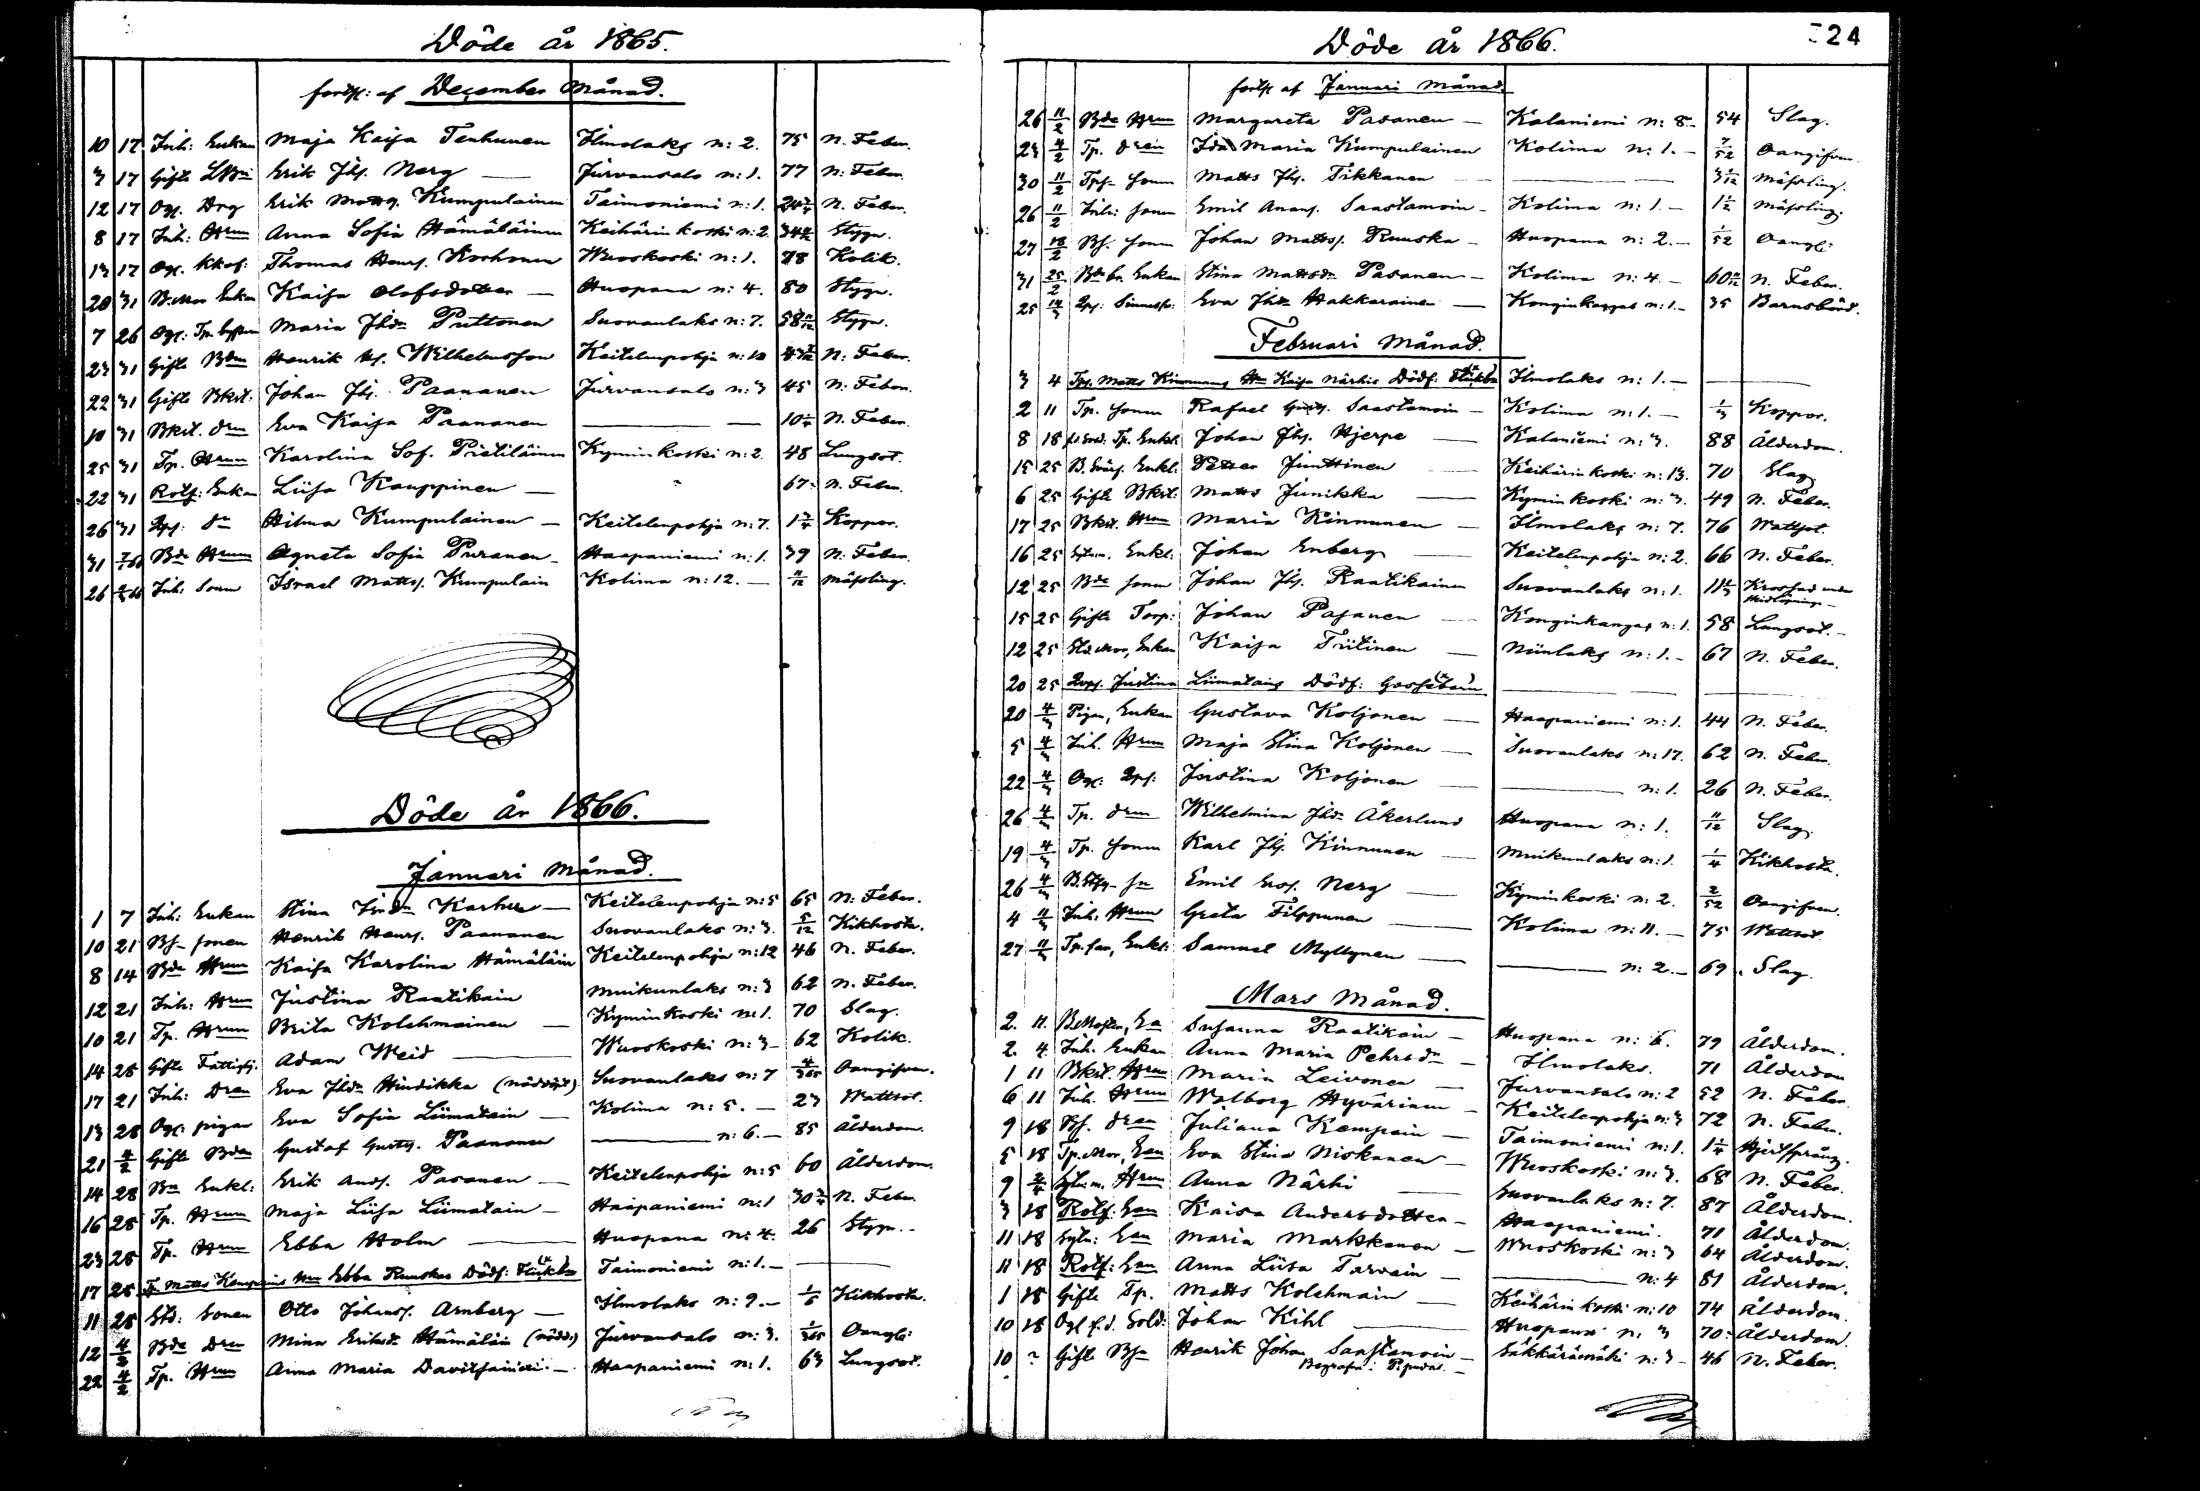 Döde år 1865.
forts: af December Månad.
10 17 Inh: Enkan Maja Kaisa Tenhunen Ilmolaks n: 2. 75 N. Feber.
3 17 Gifte Erik Jhs. Narg — Jurvansalo n: 1. 77 N: Feber.
12 17 Og. Drg Erik Matts. Kumpulainen Taimoniemi n: 1. N. Feber.
8 17 Inh: Hrun Anna Sofia Hämäläinen Keihärinkoski n: 2. Stygn.
13 17 Og. Thomas Henrs. Korhonen Wuoskoski n: 1. 78 Kolik.
20 31 Enkan Kaisa Olofsdotter — Huopana n: 4. 80 Stygn.
7 26 Og: Maria Jhdr Puttonen Suovanlaks n: 7. Stygn.
23 31 Gifte Bdn Henrik Wilhelmsson Keitelenpohja n: 12 N: Feber.
22 31 Gifte Bkst: Johan Jhs. Paananen Jurvansalo n: 3 45 N: Feber.
10 31 Bkst. drn Eva Kaisa Paananen — — N. Feber.
25 31 Tp. Hrun Karolina Sof. Pietiläinen Kyminkoski n: 2. 48 Lungsot.
22 31 Rotf: Enkan Liisa Kauppinen — " 67. N. Feber.
26 31 Hilma Kumpulainen — Keitelenpohja n: 7. 1 3/4 Koppor.
31 7/ Bde Hrun Agneta Sofia Puranen — Haapaniemi n: 1. 39 N: Feber.
26 Inh: Sonen Israel Matts. Kumpulain Kolima n: 12. — 11/12 Mässling.
Döde år 1866.
Januari Månad.
1 7 Inh: Enkan Stina Karhu — Keitelenpohja n: 5 65 N: Feber.
10 21 Bs- sonen Henrik Henrs. Paananen Suovanlaks n: 3. 5/12 Kikhosta.
8 14 Bde Hrun Kaisa Karolina Hämäläin Keitelenpohja n: 12 46 N. Feber.
12 21 Inh: Hrun Justina Raatikain Muikunlaks n: 3 62 N. Feber.
10 21 Tp. Hrun Brita Kolehmainen — Kyminkoski n: 1. 70 Slag.
14 28 Gifte Fattighj. Adam Weid — Wuoskoski n: 3 — 62 Kolik.
17 21 Inh: Dren Eva Jhdr Hindikka (nöddöpt) Suovanlaks n: 7 4/365 Oangifven.
13 28 Og: pigan Eva Sofia Liimatain — Kolima n: 5. — 23 Wattsot.
21 4/2 Gifte Bden Gustaf Gusts. Paananen — n: 6. — 85 Ålderdom.
14 28 Bn Enkl: Erik Ands. Pasanen — Keitelenpohja n: 5 60 Ålderdom.
16 28 Tp. Hrun Maja Liisa Liimatain — Haapaniemi n: 1 30 3/4 N. Feber.
23 28 Tp. Hrun Ebba Holm — Huopana n: 4. 26 Stygn. —
17 28 Tp. Matts Hrn Ebba Ruuskas Dödf: Flickb. Taimoniemi n: 1. — —
11 28 Std: Sonen Otto Johans. Arnberg — Ilmolaks n: 9. — 1/6 Kikhosta.
12 4/2 Bde Dren Mina Eriksdr Hämäläin (nödd:) Jurvansalo n: 3. 1/365 Oangif:
22 4/2 Tp. Hrun Anna Maria Davitsainen. — Haapaniemi n: 1. 63 Lungsot.
Döde år 1866.
24
forts af Januari Månad.
26 11/2 Bde Hrun Margareta Pasanen — Kalaniemi n: 8 — 54 Slag.
23 4/2 Tp. dren Ida Maria Kumpulainen Kolima n: 1. — 7/52 Oangifven
30 11/2 Tps- sonen Matts Jhs. Tikkanen — — 3 Mässling.
26 11/2 Inh: sonen Emil Anans. Saastamoin — Kolima n: 1. — 1 1/2 Mässling.
27 18/2 Bs. sonen Johan Matts. Ruuska — Huopana n: 2. — 1/52 Oangif:
31 25/2 Enkan Stina Mattsdr Pasanen — Kolima n: 4 — 60 N. Feber.
25 14/3 Eva Jhdr Hakkarainen — Konginkangas n: 1. — 35 Barnsbörd.
Februari Månad.
3 4 Tps. Matts Kinnunens Hru Kaisa Närhis Dödf: Flickb. Ilmolaks n: 1. — —
2 11 Tp. sonen Rafael Gusts. Saastamoin — Kolima n: 1. — 1/3 Koppor.
8 18 Tp. Enkl. Johan Jhs. Hjerpe — Kalaniemi n: 3. 88 Ålderdom.
15 25 B. Svärf. Enkl. Petter Junttinen — Keihärinkoski n: 13. 70 Slag
6 25 Gifte Bkst: Matts Junikka — Kyminkoski n: 3. 49 N. Feber.
17 25 Bkst. Hrun Maria Kinnunen — Ilmolaks n: 7. 76 Wattsot.
16 25 Enkl: Johan Enberg — Keitelenpohja n: 2. 66 N. Feber.
12 25 Bde sonen Johan Jhs. Raatikainen Suovanlaks n: 1. 11 1/3 Krossad under
15 25 Gifte Torp: Johan Pasanen — Konginkangas n: 1. 58 Lungsot. —
12 25 Enkan Kaisa Tiitinen — Niinlaks n: 1. — 67 N. Feber.
20 25 Justina Liimatains Dödf: Gossebarn — —
20 4/3 Pigan, Enkan Gustava Koljonen — Haapaniemi n: 1. 44 N. Feber.
5 4/3 Inh. Hrun Maja Stina Koljonen — Suovanlaks n: 17. 62 N. Feber.
22 4/3 Og: Justina Koljonen — — n: 1. 26 N. Feber.
26 4/3 Tp. drun Wilhelmina Jhdr Åkerlund Huopana n: 1. 11/12 Slag.
19 4/3 Tp. sonen Karl Jhs. Kinnunen — Muikunlaks n: 1. 1/4 Kikhosta.
26 4/3 Emil Ers. Narg — Kyminkoski n: 2. 2/52 Oangifven.
4 11/3 Inh. Hrun Greta Filppunen — Kolima n: 11. — 75 Wattsot.
27 11/3 Tp. far, Enkl: Samuel Myllynen — — n: 2. — 69. Slag.
Mars Månad.
2. 11. Susanna Raatikain — Huopana n: 6. 79 Ålderdom.
2. 4. Inh. Enkan Anna Maria Pehrsdr — Ilmolaks. 71 Ålderdom
1 11 Bkst. Hrun Maria Leivonen — Jurvansalo n: 2 52 N. Feber.
6 11 Inh. Hrun Walborg Hyvärinen — Keitelenpohja n: 3 72 N. Feber.
9 18 Bs. dren Juliana Kempain — Taimoniemi n: 1. 1 1/4 Hjertsprång.
5 18 Tp. Mor, Ean Eva Stina Niskanen — Wuoskoski n: 3. 68 N. Feber.
9 2/4 Hrun Anna Närhi — Suovanlaks n: 7. 87 Ålderdom.
3 18 Rotf. Ean Kaisa Andersdotter — Haapaniemi. 71 Ålderdom.
11 18 Ean Maria Markkanen — Wuoskoski n: 3 64 Ålderdom.
11 18 Rotf: Ean Anna Liisa Tarvain — — n: 4 81 Ålderdom.
1 18 Gifte Tp. Matts Kolehmain — Keihärinkoski n: 10 74 Ålderdom.
10 18 Og f.d. Sold: Johan Kihl — Huopana n: 3 70: Ålderdom.
10 ? Gifte Bsn Henrik Johan Saastamoin — Säkkärämäki n: 3 — 46 N. Feber.